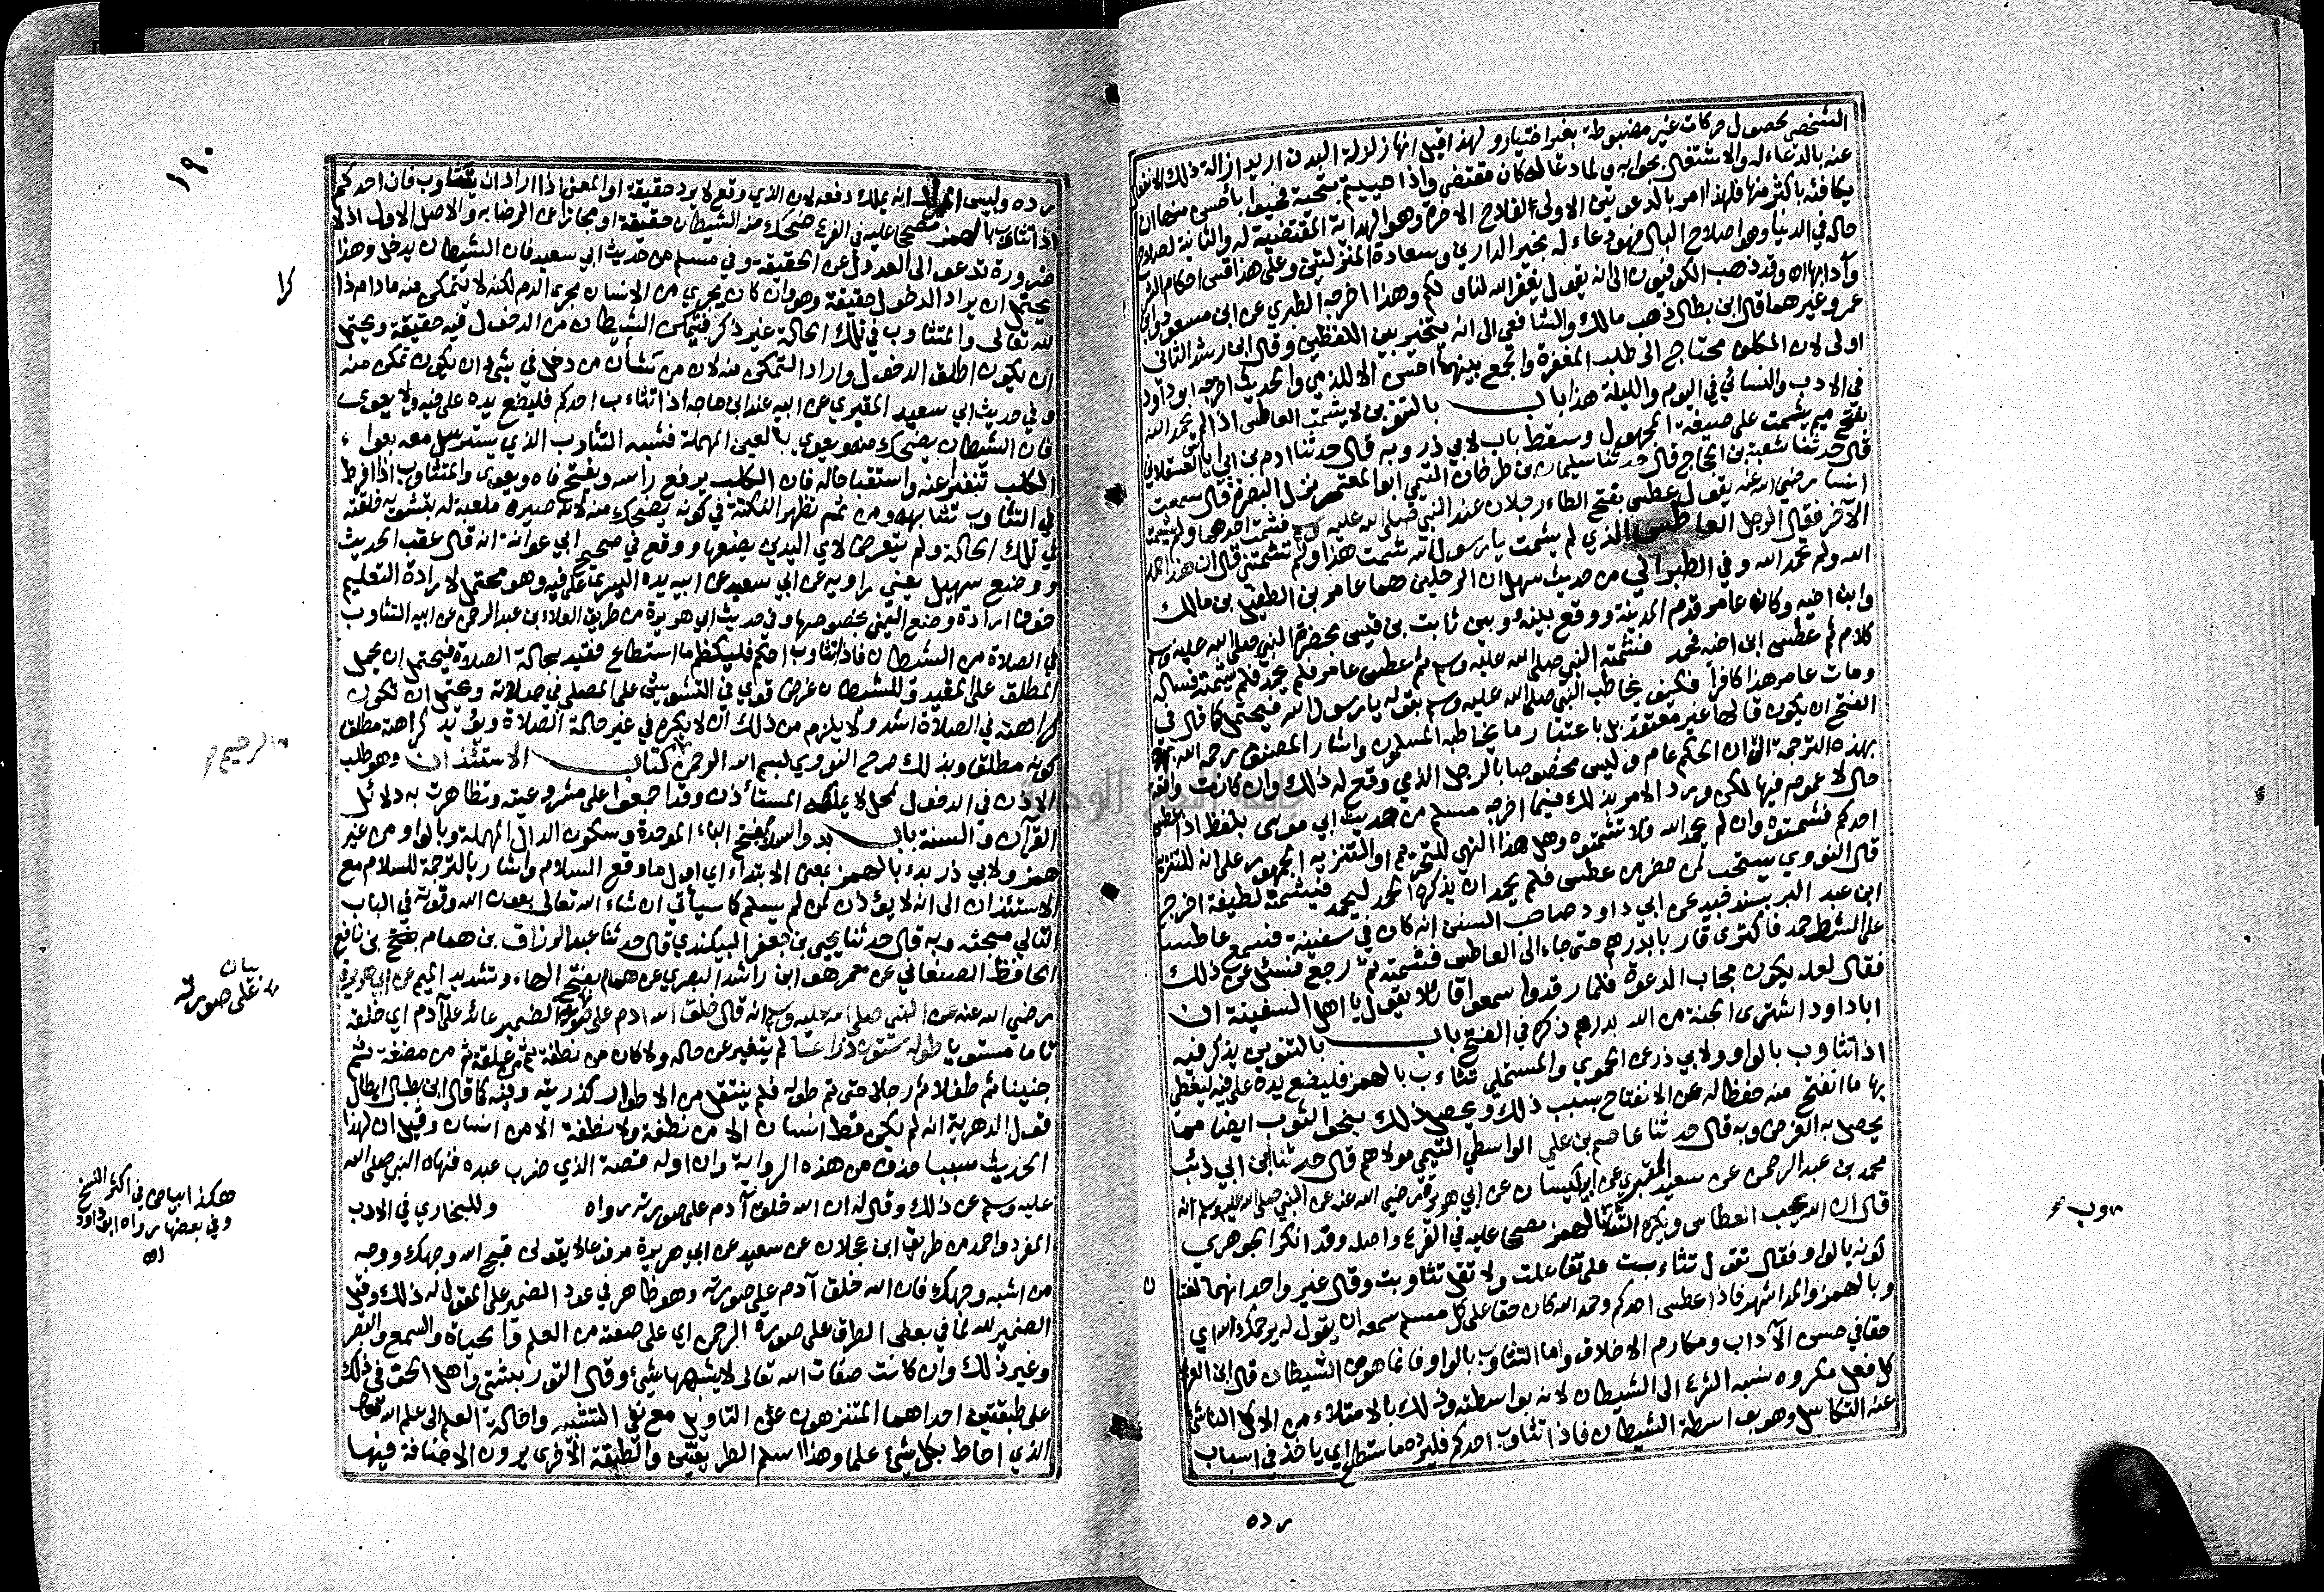 الشخص بحصول حركات غير مضبوطة بغير اختيار ولهذا قيل انها زلزلة البدن اريد ازالة ذلك الانفعال
عنه بالدعاء له والاشتغال بجوابه ولما دعا له كان مقتضى واذا حييتم بتحية فحيوا بأحسن منها ان
يكافئه باكثر منها فلهذا امر بالدعوتين الاولى لفلاح الاخرة وهو الهداية المقتضية له والثانية لصلاح
حاله في الدنيا وهو اصلاح البال فهو دعاء له بخير الدارين وسعادة المنزلتين وعلى هذا قس احكام الشريعة
وآدابها اه وقد ذهب الكوفيون الى انه يقول يغفر الله لنا ولكم وهذا اخرجه الطبري عن ابن مسعود وابن
عمر وغيرهما قال ابن بطال ذهب مالك والشافعي الى انه يتخير بين اللفظين وقال ابن رشد الثاني
اولى لان المكلف محتاج الى طلب المغفرة والجمع بينهما احسن الا للذمي والحديث اخرجه ابو داود
في الادب والنسائي في اليوم والليلة هذا باب بالتنوين لا يشمت العاطس اذا لم يحمد الله
بفتح ميم يشمت على صيغة المجهول وسقط باب لابي ذر وبه قال حدثنا ادم بن ابي اياس العسقلاني
قال حدثنا شعبة بن الحجاج قال حدثنا سليمان بن طرخان التيمي ابو المعتمر نزل البصرة قال سمعت
انسا رضي الله عنه يقول عطس بفتح الطاء رجلان عند النبي صلى الله عليه وسلم فشمت احدهما ولم يشمت
الآخر فقال الرجل العاطس الذي لم يشمت يا رسول الله شمت هذا ولم تشمتني قال ان هذا حمد
الله ولم تحمد الله وفي الطبراني من حديث سهل ان الرجلين هما عامر بن الطفيل بن مالك
وابن اخيه وكان عامر قدم المدينة ووقع بينه وبين ثابت بن قيس بحضرة النبي صلى الله عليه وسلم
كلام ثم عطس ابن اخيه فحمد فشمته النبي صلى الله عليه وسلم ثم عطس عامر فلم يحمد فلم يشمته فسأله
ومات عامر هذا كافرا فكيف يخاطب النبي صلى الله عليه وسلم بقوله يا رسول الله فيحتمل كما قال في
الفتح ان يكون قالها غير معتقد بل باعتبار ما يخاطبه المسلمون واشار المصنف رحمه الله
بهذه الترجمة الى ان الحكم عام وليس مخصوصا بالرجل الذي وقع له ذلك وان كانت واقعة
حال لا عموم فيها لكن ورد الامر بذلك فيما اخرجه مسلم من حديث ابي موسى بلفظ اذا عطس
احدكم فحمد فشمتوه وان لم يحمد الله فلا تشمتوه وهل هذا النهي للتحريم او للتنزيه الجمهور على انه للتنزيه
قال النووي يستحب لمن حضر من عطس فلم يحمد ان يذكره الحمد ليحمد فيشمته لطيفة اخرج
ابن عبد البر بسند جيد عن ابي داود صاحب السنن انه كان في سفينة فسمع عاطسا
على الشط حمد فاكترى قاربا بدرهم حتى جاء الى العاطس فشمته ثم رجع فسئل عن ذلك
فقال لعله يكون مجاب الدعوة فلما رقدوا سمعوا قائلا يقول يا اهل السفينة ان
ابا داود اشترى الجنة من الله بدرهم ذكره في الفتح باب بالتنوين يذكر فيه
اذا تثاوب بالواو ولابي ذر عن الحموي والمستملي تثاءب بالهمز فليضع يده على فيه ليغطي
بها ما انفتح منه حفظا له عن الانفتاح بسبب ذلك ويحصل ذلك بنحو الثوب ايضا مما
يحصل به الغرض وبه قال حدثنا عاصم بن علي الواسطي التيمي مولاهم قال حدثنا ابن ابي ذئب
محمد بن عبد الرحمن عن سعيد المقبري عن ابيه كيسان عن ابي هريرة رضي الله عنه عن النبي صلى الله عليه وسلم انه
قال ان الله يحب العطاس ويكره التثاؤب بالهمز مصححا عليه في الفرع واصله وقد انكر الجوهري
كونه بالواو فقال تقول تثاءبت على تفاعلت ولا تقل تثاوبت وقال غير واحد انهما لغتان
وبالهمز والمد اشهر فاذا عطس احدكم وحمد الله كان حقا على كل مسلم سمعه ان يقول له يرحمك الله اي
حقا في حسن الآداب ومكارم الاخلاق واما التثاوب بالواو فانما هو من الشيطان قال ابن العربي
كل فعل مكروه نسبه الشرع الى الشيطان لانه بواسطته وذلك بالامتلاء من الاكل الناشئ
عنه التكاسل وهو بواسطة الشيطان فاذا تثاوب احدكم فليرده ما استطاع اي ياخذ في اسباب
رده
وب
١٩٠
رده وليس المراد انه يملك دفعه لان الذي وقع لا يرد حقيقة او المعنى اذا اراد ان يتثاوب فان احدكم
اذا تثاءب بالهمز مصححا عليه في الفرع ضحك منه الشيطان حقيقة او مجازا عن الرضا به والاصل الاول اذ لا
ضرورة تدعو الى العدول عن الحقيقة وفي مسلم من حديث ابي سعيد فان الشيطان يدخل وهذا
يحتمل ان يراد الدخول حقيقة وهو وان كان يجري من الانسان مجرى الدم لكنه لا يتمكن منه ما دام ذاكرا
لله تعالى والمتثاوب في تلك الحالة غير ذاكر فيتمكن الشيطان من الدخول فيه حقيقة ويحتمل
ان يكون اطلق الدخول واراد التمكن منه لان من شأن من دخل في شيء ان يكون تمكن منه
وفي حديث ابي سعيد المقبري عن ابيه عند ابن ماجه اذا تثاءب احدكم فليضع يده على فيه ولا يعوي
فان الشيطان يضحك منه ويعوي بالعين المهملة فشبه التثاوب الذي يسترسل معه بعواء
الكلب تنفيرا عنه واستقباحا له فان الكلب يرفع راسه ويفتح فاه ويعوي والمتثاوب اذا افرط
في التثاوب شابهه ومن ثم تظهر النكتة في كونه يضحك منه لانه صيره ملعبة له بتشويه خلقته
في تلك الحالة ولم يتعرض لاي اليدين يضعها ووقع في صحيح ابي عوانة انه قال عقب الحديث
ووضع سهيل يعني راويه عن ابي سعيد عن ابيه يده اليسرى على فيه وهو محتمل لارادة التعليم
خوف ارادة وضع اليمنى بخصوصها وفي حديث ابي هريرة من طريق العلاء بن عبد الرحمن عن ابيه التثاوب
في الصلاة من الشيطان فاذا تثاوب احدكم فليكظم ما استطاع فقيد بحالة الصلاة فيحتمل ان يحمل
المطلق على المقيد وللشيطان غرض قوي في التشويش على المصلي في صلاته ويحتمل ان تكون
كراهته في الصلاة اشد ولا يلزم من ذلك ان لا يكره في غير حالة الصلاة ويؤيد كراهته مطلقا
كونه مطلقا وبذلك صرح النووي بسم الله الرحمن كتاب الاستئذان وهو طلب
الرحيم
الاذن في الدخول لمحل لا يملكه المستأذن وقد اجمعوا على مشروعيته وتظاهرت به دلائل
القرآن والسنة باب بدو السلام بفتح الباء الموحدة وسكون الدال المهملة وبالواو من غير
همز ولابي ذر بدء بالهمز بمعنى الابتداء اي اول ما وقع السلام واشار بالترجمة للسلام مع
الاستئذان الى انه لا يؤذن لمن لم يسلم كما سيأتي ان شاء الله تعالى بعون الله وقوته في الباب
التالي مبحثه وبه قال حدثنا يحيى بن جعفر البيكندي قال حدثنا عبد الرزاق بن همام بفتح بن نافع
الحافظ الصنعاني عن معمر هو ابن راشد البصري عن همام بفتح الهاء وتشديد الميم عن ابي هريرة
رضي الله عنه عن النبي صلى الله عليه وسلم انه قال خلق الله ادم على صورته الضمير عائد على آدم اي خلقه
بيان على صورته
تاما مستويا طوله ستون ذراعا لم يتغير عن حاله ولا كان من نطفة ثم من علقة ثم من مضغة ثم
جنينا ثم طفلا ثم رجلا حتى تم طوله فلم ينتقل من الاطوار كذريته وفيه كما قال ابن بطال ابطال
قول الدهرية انه لم يكن قط انسان الا من نطفة ولا نطفة الا من انسان وقيل ان لهذا
الحديث سببا حذف من هذه الرواية وان اوله قصة الذي ضرب عبده فنهاه النبي صلى الله
عليه وسلم عن ذلك وقال له ان الله خلق آدم على صورته رواه وللبخاري في الادب
هكذا بياض في اكثر النسخ
وفي بعضها رواه ابو داود
اه
المفرد واحمد من طريق ابن عجلان عن سعيد عن ابي هريرة مرفوعا لا يقولن قبح الله وجهك ووجه
من اشبه وجهك فان الله خلق آدم على صورته وهو ظاهر في عود الضمير على المقول له ذلك وقيل
الضمير لله لما في بعض الطرق على صورة الرحمن اي على صفته من العلم والحياة والسمع والبصر
وغير ذلك وان كانت صفات الله تعالى لا يشبهها شيء وقال التوربشتي واهل الحق في ذلك
على طبقتين احداهما المتنزهون عن التاويل مع نفي التشبيه واحالة العلم الى علم الله تعالى
الذي احاط بكل شيء علما وهذا اسلم الطريقتين والطبقة الاخرى يرون الاضافة فيها